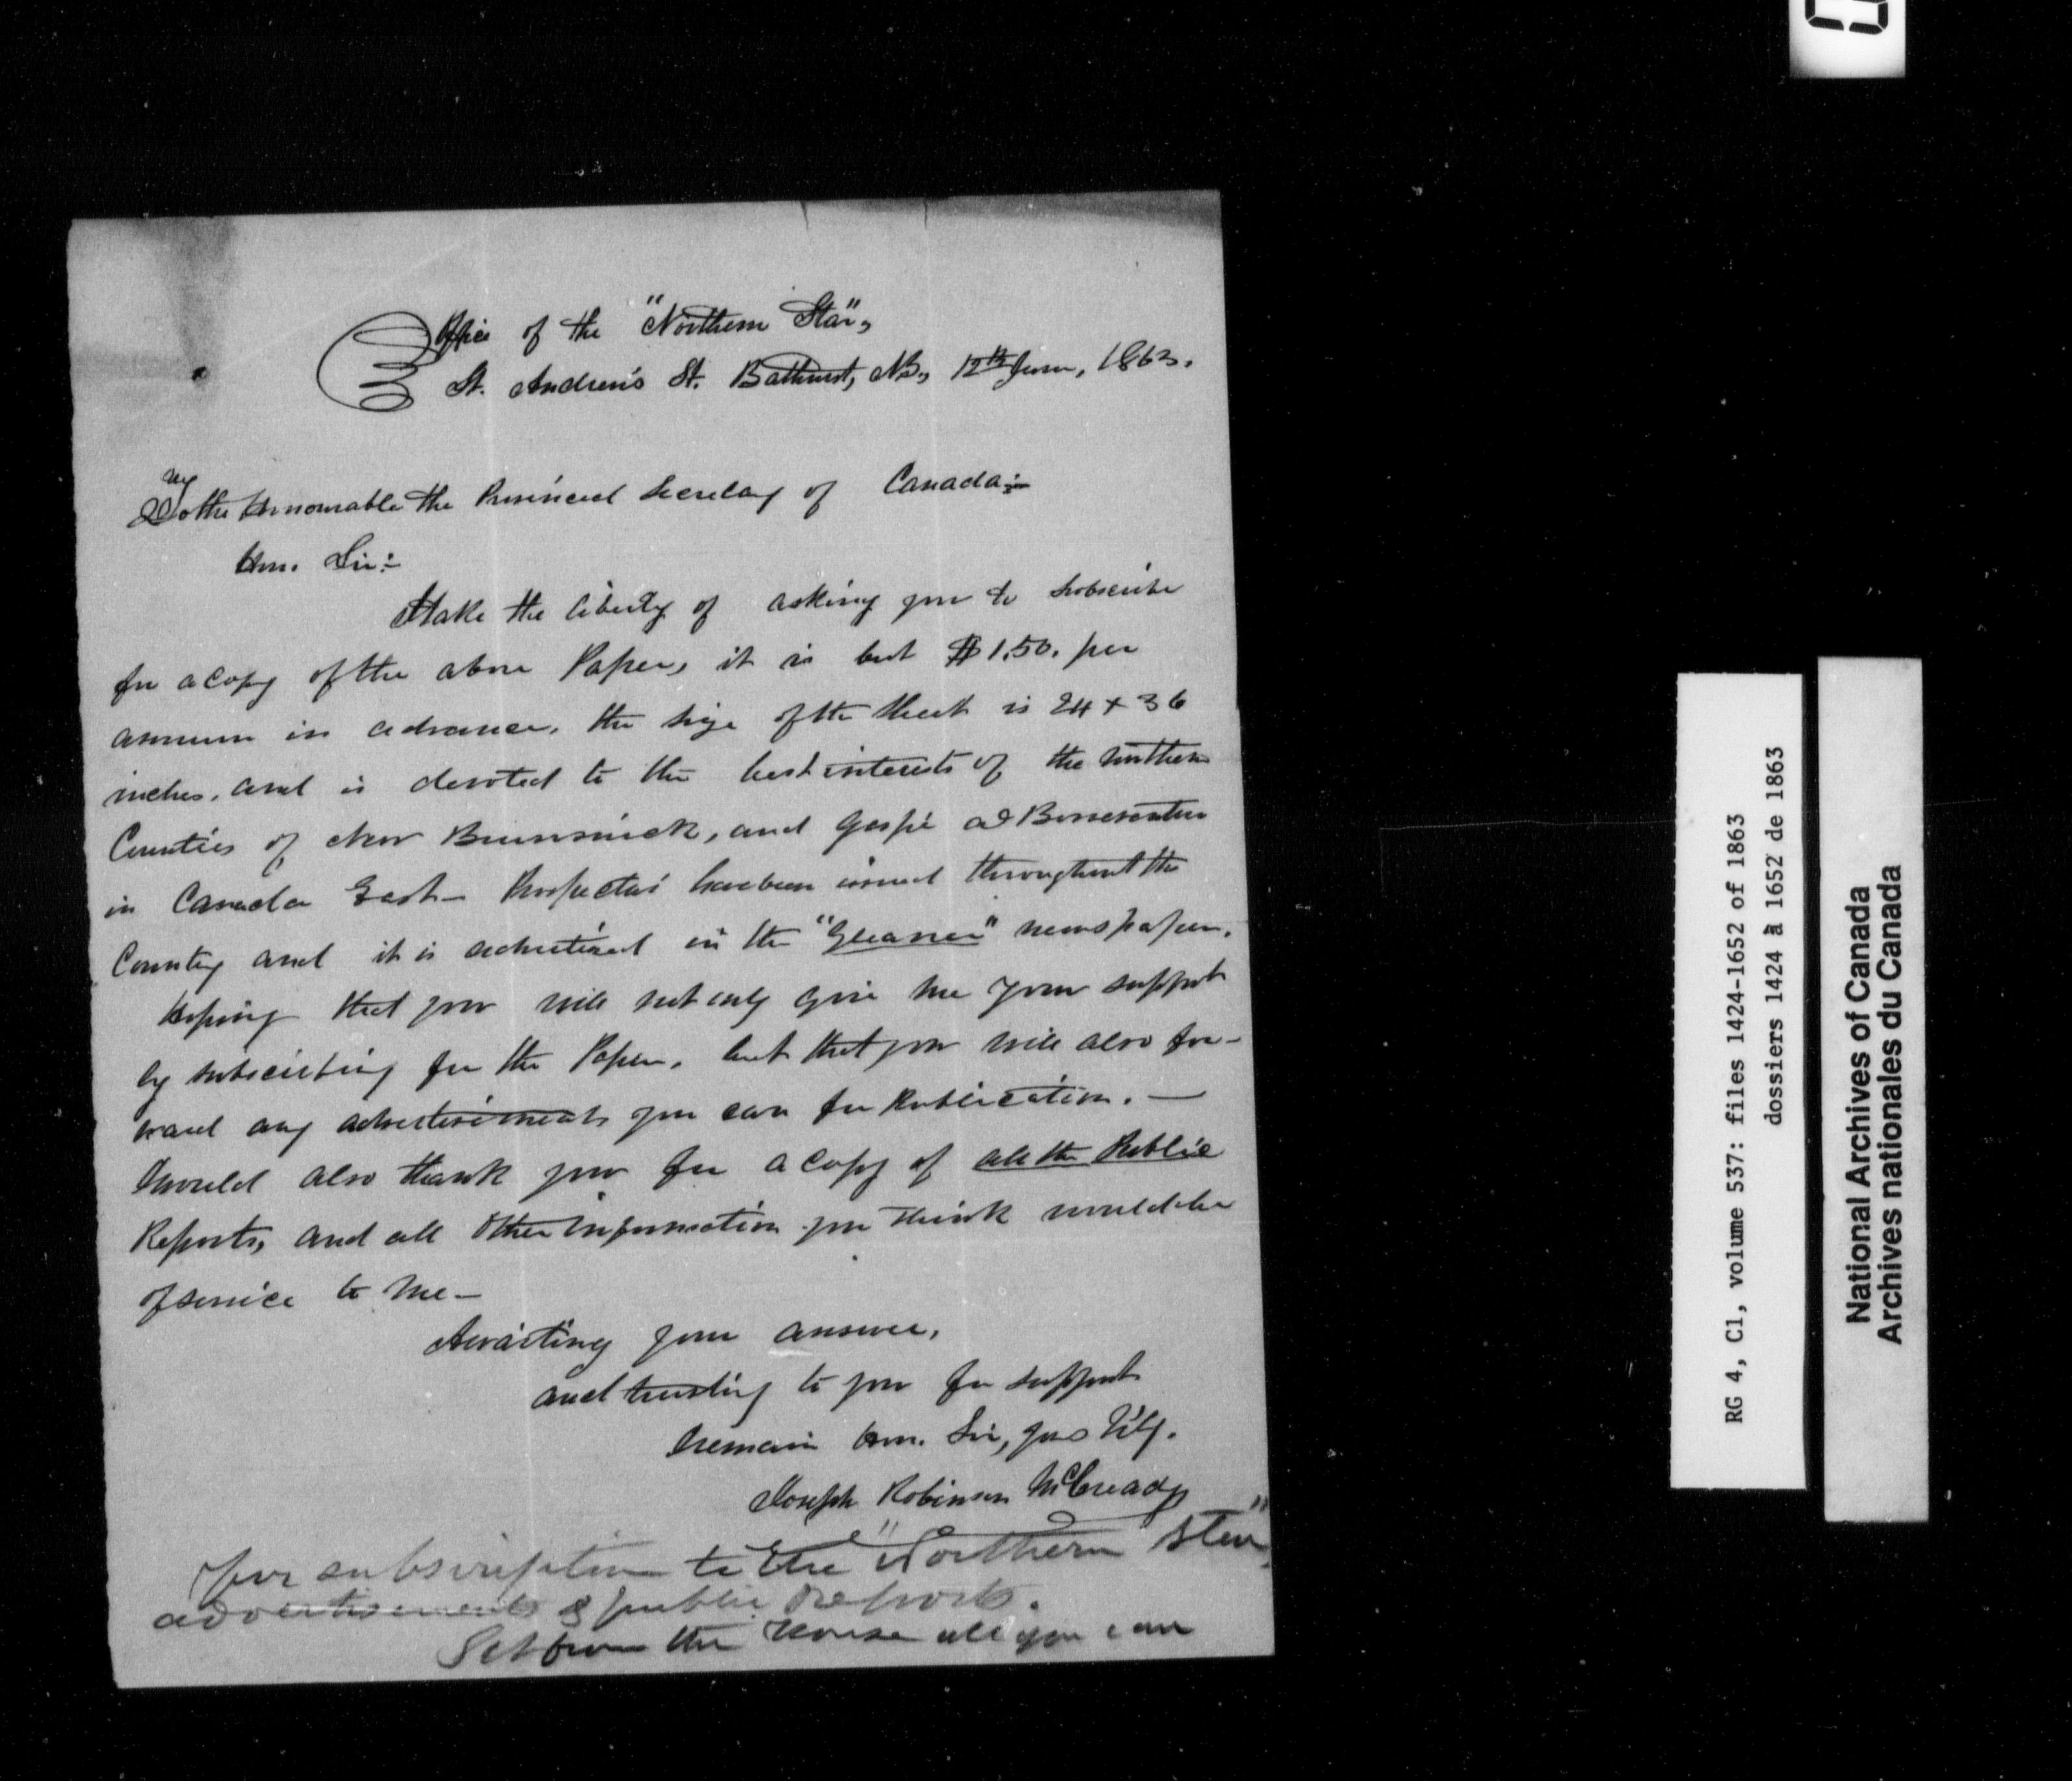 Office of the "Northern Star",
St. Andrew's St. Bathurst, N.B., 12th June, 1863.
To the Honourable the Provincial Secretary of Canada:-
Hon. Sir:-
I take the liberty of asking you to subscribe
for a copy of the above Paper, it is but $1.50. per
annum in advance. the size of the sheet is 24 x 36
inches, and is devoted to the best interests of the northern
Counties of New Brunswick, and Gaspé and Bonaventure
in Canada East - Prospectus' have been issued throughout the
County and it is advertized in the "Gleaner" newspaper.
Hoping that you will not only give me your support
by subscribing for the Paper, but that you will also for-
ward any advertisements you can for Publication. —
I would also thank you for a copy of all the Public
Reports, and all other information you think would be
of service to me -
Awaiting your answer,
and trusting to you for support
I remain Hon. Sir, yours
Joseph Robinson McCready
for subscription to the "Northern Star"
advertisements & public Reports.
Get from the House all you can
RG 4, C1, volume 537: files 1424-1652 of 1863
dossiers 1424 à 1652 de 1863
National Archives of Canada
Archives nationales du Canada